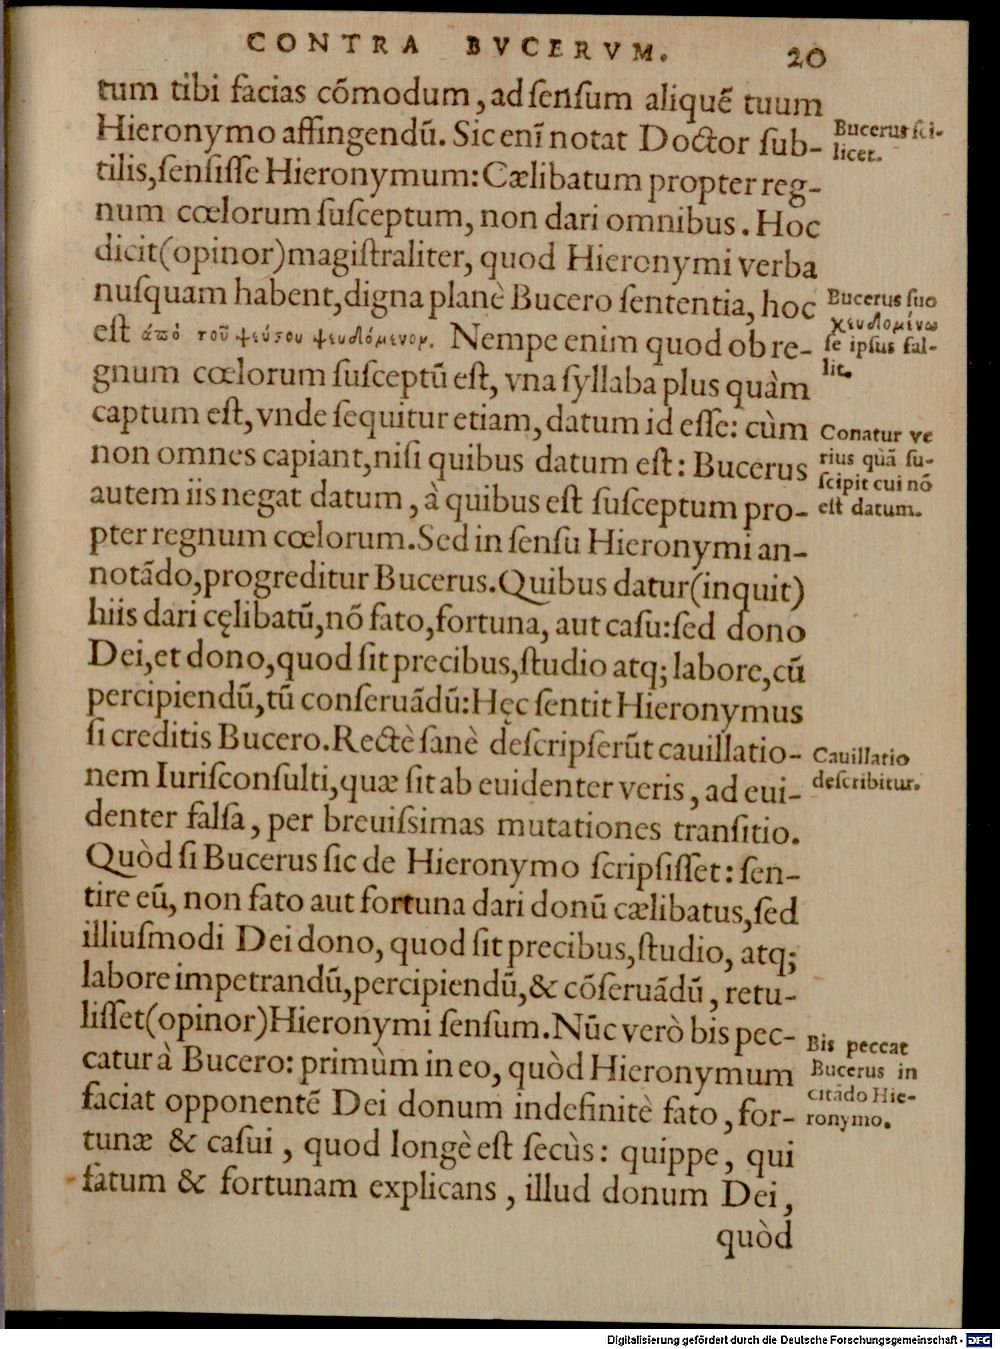 CONTRA BVCERVM. 20
tum tibi facias cōmodum, ad ſenſum aliquē tuum
Hieronymo affingendū. Sic enī notat Doctor ſub-
tilis, ſenſiſſe Hieronymum: Cælibatum propter reg-
num cœlorum ſuſceptum, non dari omnibus. Hoc
dicit (opinor) magiſtraliter, quod Hieronymi verba
nuſquam habent, digna planè Bucero ſententia, hoc
eſt ἀπὸ τοῦ ψεύστου ψευδόμενον. Nempe enim quod ob re-
gnum cœlorum ſuſceptū eſt, vna ſyllaba plus quàm
captum eſt, vnde ſequitur etiam, datum id eſſe: cùm
non omnes capiant, niſi quibus datum eſt: Bucerus
autem iis negat datum, à quibus eſt ſuſceptum pro-
pter regnum cœlorum. Sed in ſenſu Hieronymi an-
notādo, progreditur Bucerus. Quibus datur (inquit)
hiis dari cęlibatū, nō fato, fortuna, aut caſu: ſed dono
Dei, et dono, quod ſit precibus, ſtudio atq; labore, cū
percipiendū, tū conſeruādū: Hęc ſentit Hieronymus
ſi creditis Bucero. Rectè ſanè deſcripſerūt cauillatio-
nem Iuriſconſulti, quæ ſit ab euidenter veris, ad eui-
denter falſa, per breuiſsimas mutationes tranſitio.
Quòd ſi Bucerus ſic de Hieronymo ſcripſiſſet: ſen-
tire eū, non fato aut fortuna dari donū cælibatus, ſed
illiuſmodi Dei dono, quod ſit precibus, ſtudio, atq;
labore impetrandū, percipiendū, & cōſeruādū, retu-
liſſet (opinor) Hieronymi ſenſum. Nūc verò bis pec-
catur à Bucero: primùm in eo, quòd Hieronymum
faciat opponentē Dei donum indefinitè fato, for-
tunæ & caſui, quod longè eſt ſecùs: quippe, qui
fatum & fortunam explicans, illud donum Dei,
quòd
Bucerus ſci-
licet.
Bucerus ſuo
ψευδομένω
ſe ipſus fal-
lit.
Conatur ve
rius quā ſu-
ſcipit cui nō
eſt datum.
Cauillatio
deſcribitur.
Bis peccat
Bucerus in
citādo Hie-
ronymo.
Digitalisierung gefördert durch die Deutsche Forschungsgemeinschaft - DFG